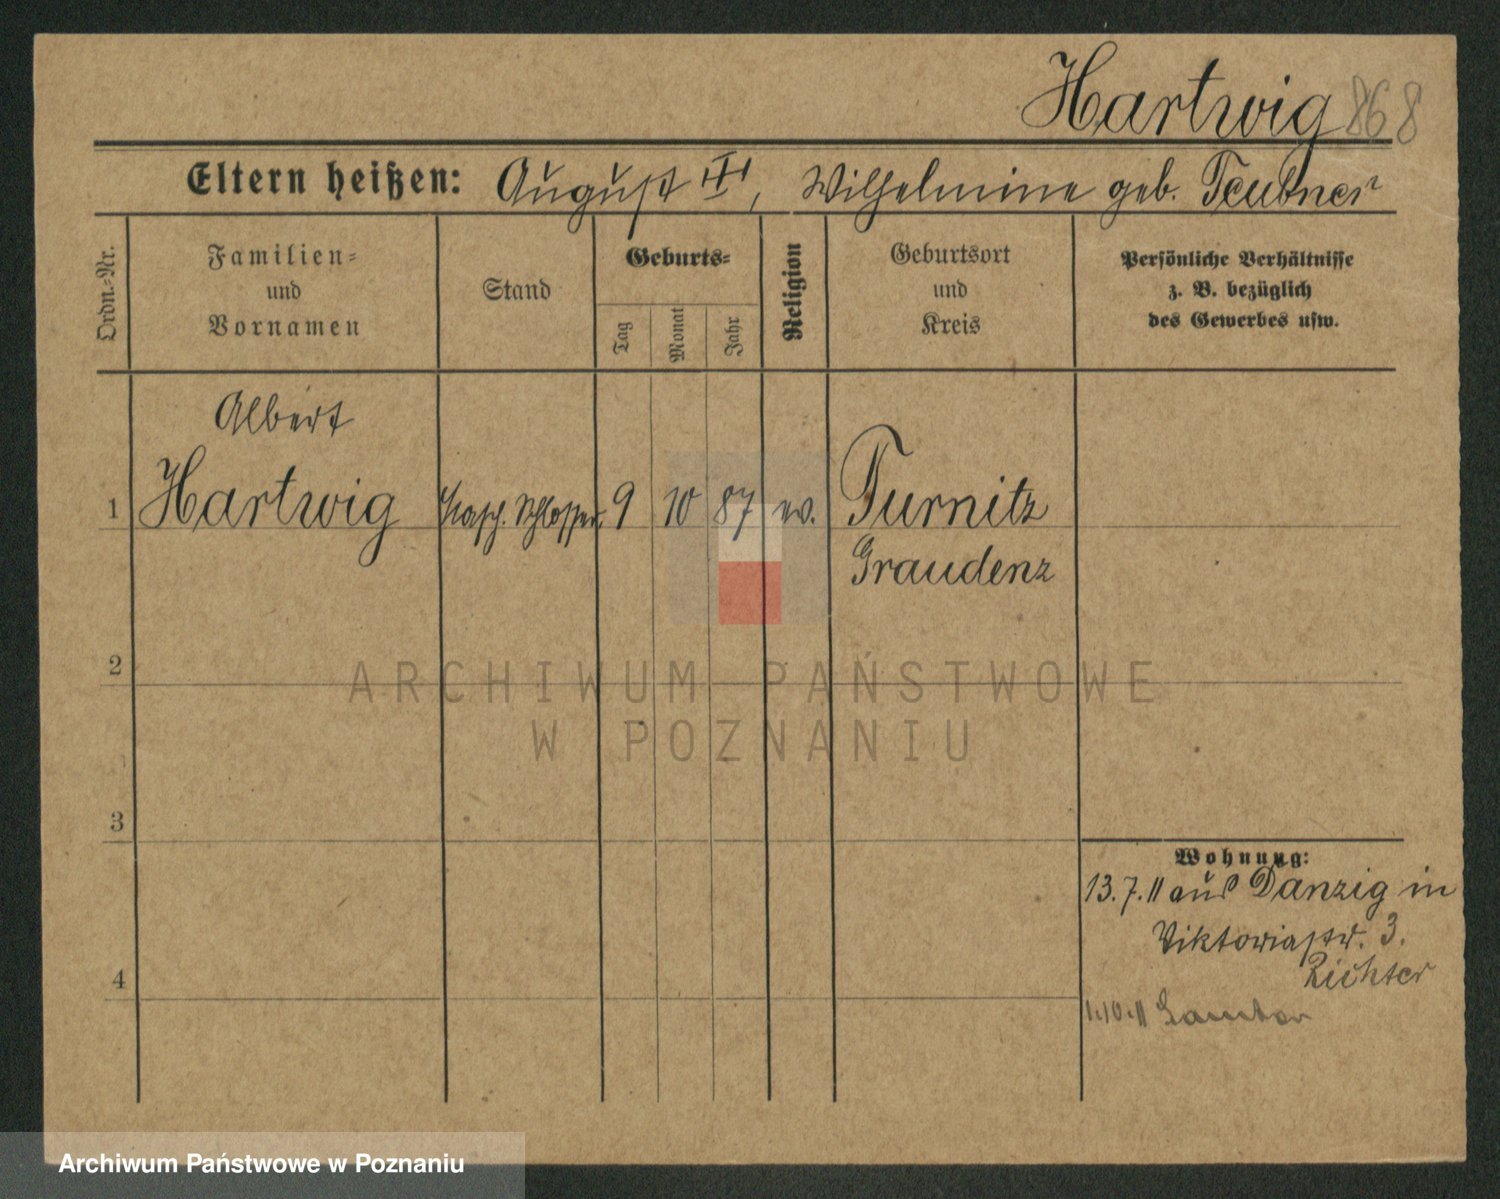 Hartwig 868
Eltern heißen: August III, Wilhelmine geb. Teubner
Ordn.-Nr.
Familien-
und
Vornamen
Stand
Geburts-
Tag
Monat
Jahr
Religion
Geburtsort
und
Kreis
Persönliche Verhältnisse
z. B. bezüglich
des Gewerbes usw.
Albert
1 Hartwig Masch. Schlosser 9 10 87 ev. Turnitz
Graudenz
2
3
4
Wohnung:
13.7.11 aus Danzig in
Viktoriastr. 3.
Richter
1.10.11
ARCHIWUM PAŃSTWOWE
W POZNANIU
Archiwum Państwowe w Poznaniu